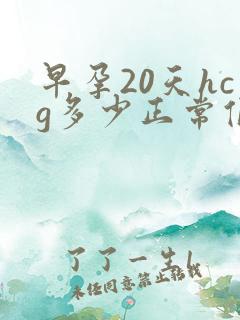 早孕20天hc
g多少正常值
了了一生l
未经同意禁止转载